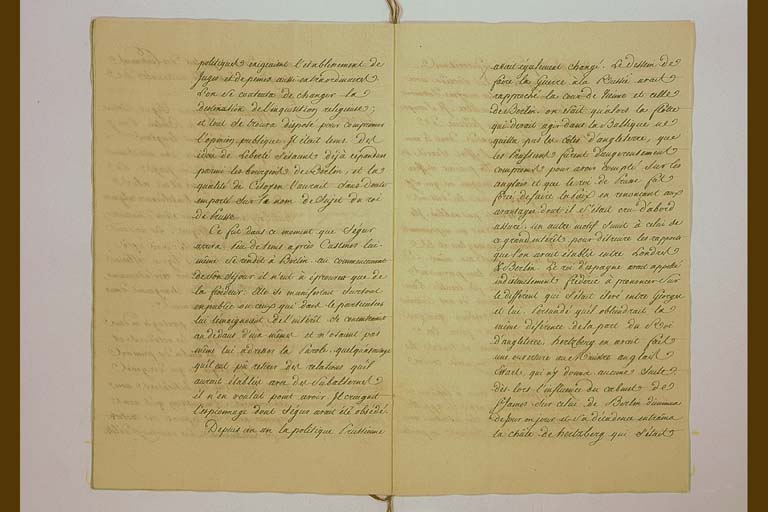 politiques exigeaient l'établissement de
Juges et de peines aussi extraordinaires.
L'on se contenta de changer la
destination de l'inquisition religieuse;
et tout se trouva disposé pour comprimer
l'opinion publique. Il était tems. Des
idées de Liberté s'étaient déjà répandues
parmi les bourgeois de Berlin, et la
qualité de Citoyen l'aurait sans doute
emporté sur le nom de Sujet du roi
de Prusse.
Ce fut dans ce moment que Ségur
arriva peu de tems après Custines lui-
même se rendit à Berlin. au commencement
de son séjour il n'eut à éprouver que de
la froideur. Elle se manifestait surtout
en public où ceux qui dans le particulier
lui témoignaient de l'intérêt se contentaient
et n'osaient pas
même lui adresser la Parole. quelqu'avantage
qu'il eut pû retirer des relations qu'il
aurait établies avec des Subalternes
il n'en voulut point avoir. Il craignait
l'espionnage dont Ségur avait été obsédé.
Depuis un an la politique Prussienne
avait également changé. Le dessein de
faire la Guerre à la Russie avait
rapproché la cour de Vienne et celle
de Berlin. on sait qu'alors la flotte
qui devait agir dans la Baltique ne
quitta pas les côtes d'angleterre, que
les Prussiens furent dangereusement
compromis pour avoir compté sur les
anglais et que le roi de Prusse fut
forcé de faire la Paix en renonçant aux
avantages dont il s'était cru d'abord
assuré. un autre motif s'unit à celui de
ce grand intérêt pour détruire les rapports
que l'on avait établis entre Londres
& Berlin. Le roi d'espagne avait appelé
Fréderic à prononcer sur
le différent qui s'était élevé entre Georges
et lui. Persuadé qu'il obtiendrait la
même déférence de la part du Roi
d'angleterre, hertzberg en avait fait
une ouverture au Ministre anglais
qui n'y donna aucune suite.
dès lors l'influence du cabinet de
St James sur celui de Berlin diminua
de jour en jour et sa décadence entraîna
la chûte de hertzberg qui s'était